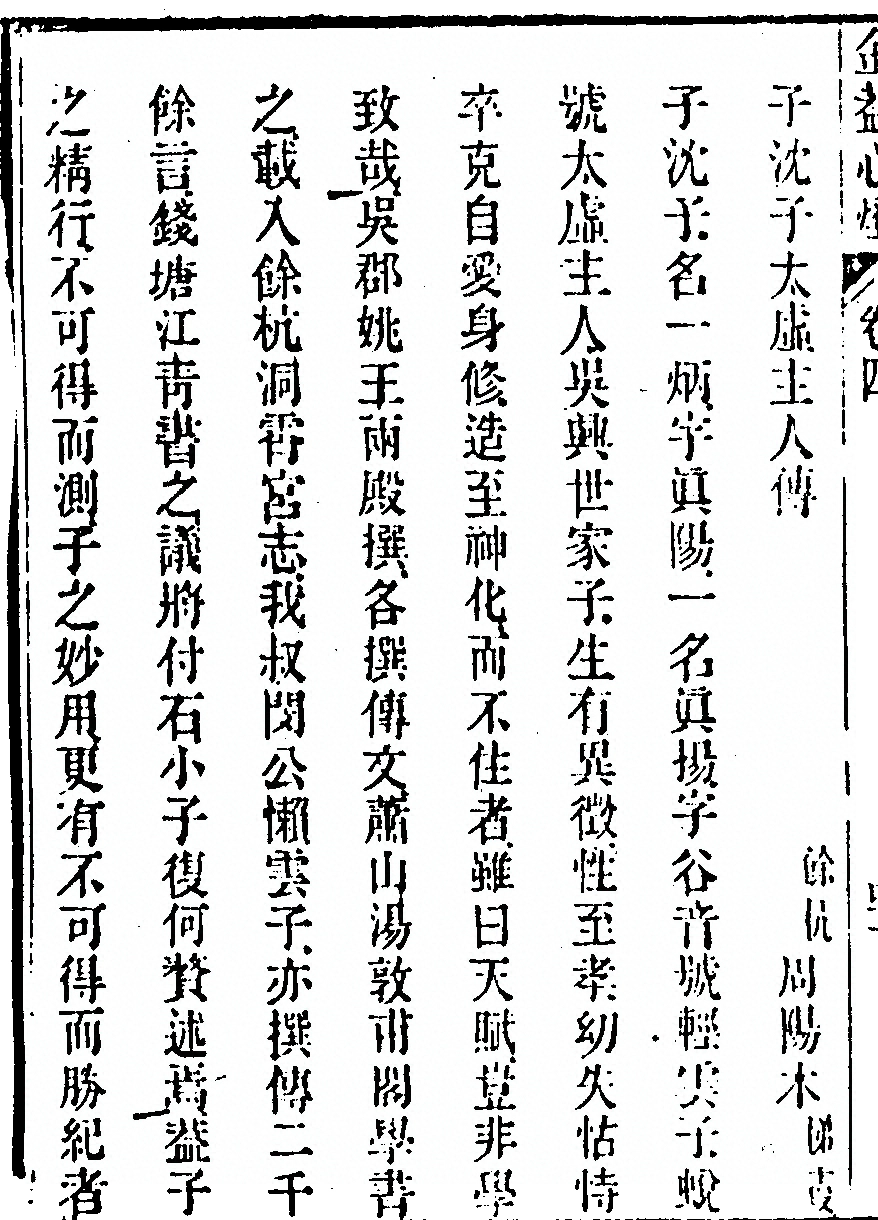 金蓋心燈 卷四
子沈子太虛主人傳
餘杭 周陽本
子沈子名一炳字眞陽一名眞揚字谷音號輕雲子蛻
號太虛主人吳興世家子生有異徵性至孝幼失怙恃
卒克自愛身修造至神化而不住者雖曰天賦豈非學
致哉吳郡姚王兩殿撰各撰傳文蕭山湯敦甫閣學書
之載入餘杭洞霄宮志我叔閔公懶雲子亦撰傳二千
餘言錢塘江靑書之議將付石小子復何贊述焉蓋子
之精行不可得而測子之妙用更有不可得而勝紀者